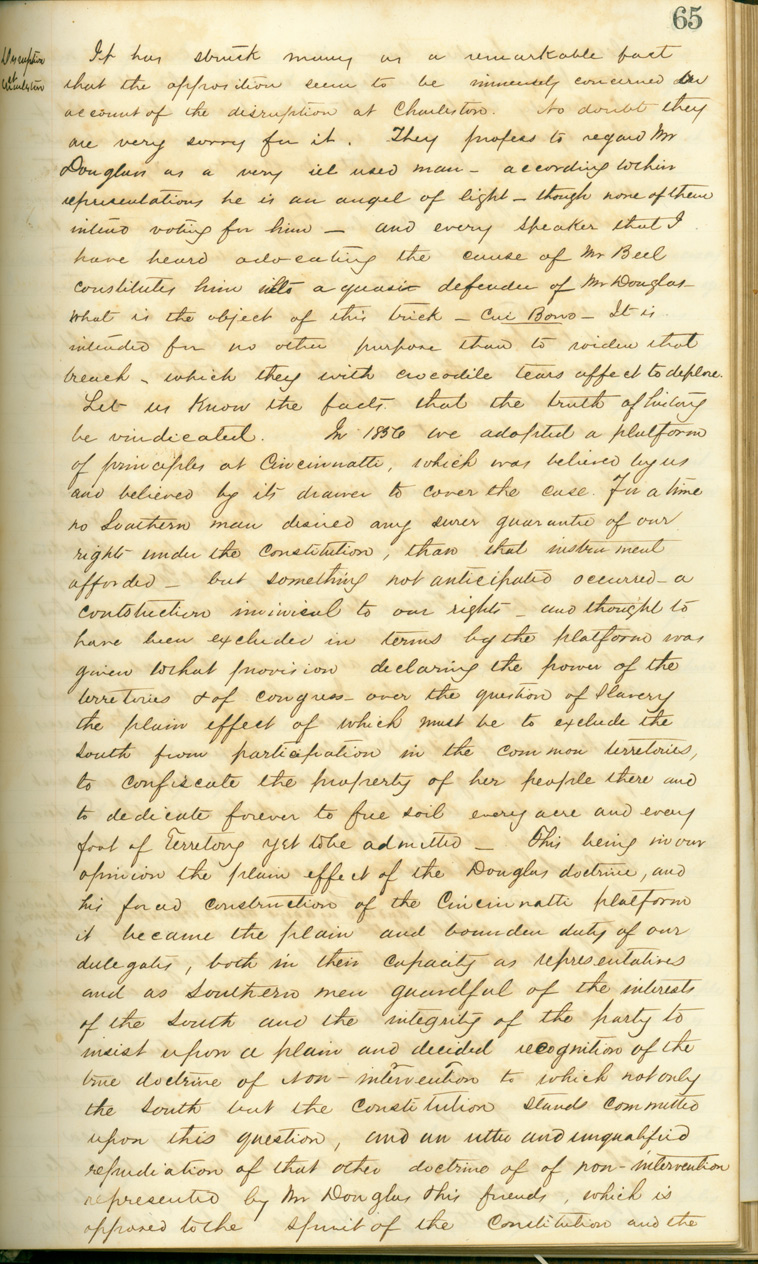 65
Disruption
at
Charleston
It has struck many as a remarkable fact
that the opposition seem to be immensely concerned on
account of the disruption at Charleston. No doubt they
are very sorry for it. They profess to regard Mr
Douglass as a very ill used man – according to their
representations he is an angel of light – though none of them
intend voting for him – and every speaker that I
have heard advocating the cause of Mr Bell
constitutes him into a quasi defender of Mr Douglas –
What is the object of this trick – Cui Bono – It is
intended for no other purpose than to widen that
breach – which they with crocodile tears affect to deplore.
Let us Know the facts. that the truth of history
be vindicated. In 1856 we adopted a platform
of principles at Cincinnatti, which was believed by us
and believed by its drawer to cover the case. For a time
no Southern man desired any surer guarantie of our
rights under the Constitution, than that instrument
afforded – but something not anticipated occurred – a
contstruction inimical to our rights – and thought to
have been excluded in terms by the platform was
given to that provision declaring the power of the
territories & of congress – over the question of Slavery
the plain effect of which must be to exclude the
South from participation in the common territories,
to confiscate the property of her people there and
to dedicate forever to free soil every acre and every
foot of Territory yet to be admitted – This being in our
opinion the plain effect of the Douglas doctrine, and
his forced construction of the Cincinnatti platform
it became the plain and bounden duty of our
delegates, both in their capacity as representatives
and as Southern men guardful of the interests
of the South and the integrity of the party to
insist upon a plain and decided recognition of the
true doctrine of Non-intervention to which not only
the South but the Constitution stands committed
upon this question, and an utter and unqualified
repudiation of that other doctrine of of non-intervention
represented by Mr Douglas & his friends, which is
opposed to the spirit of the Constitution and the